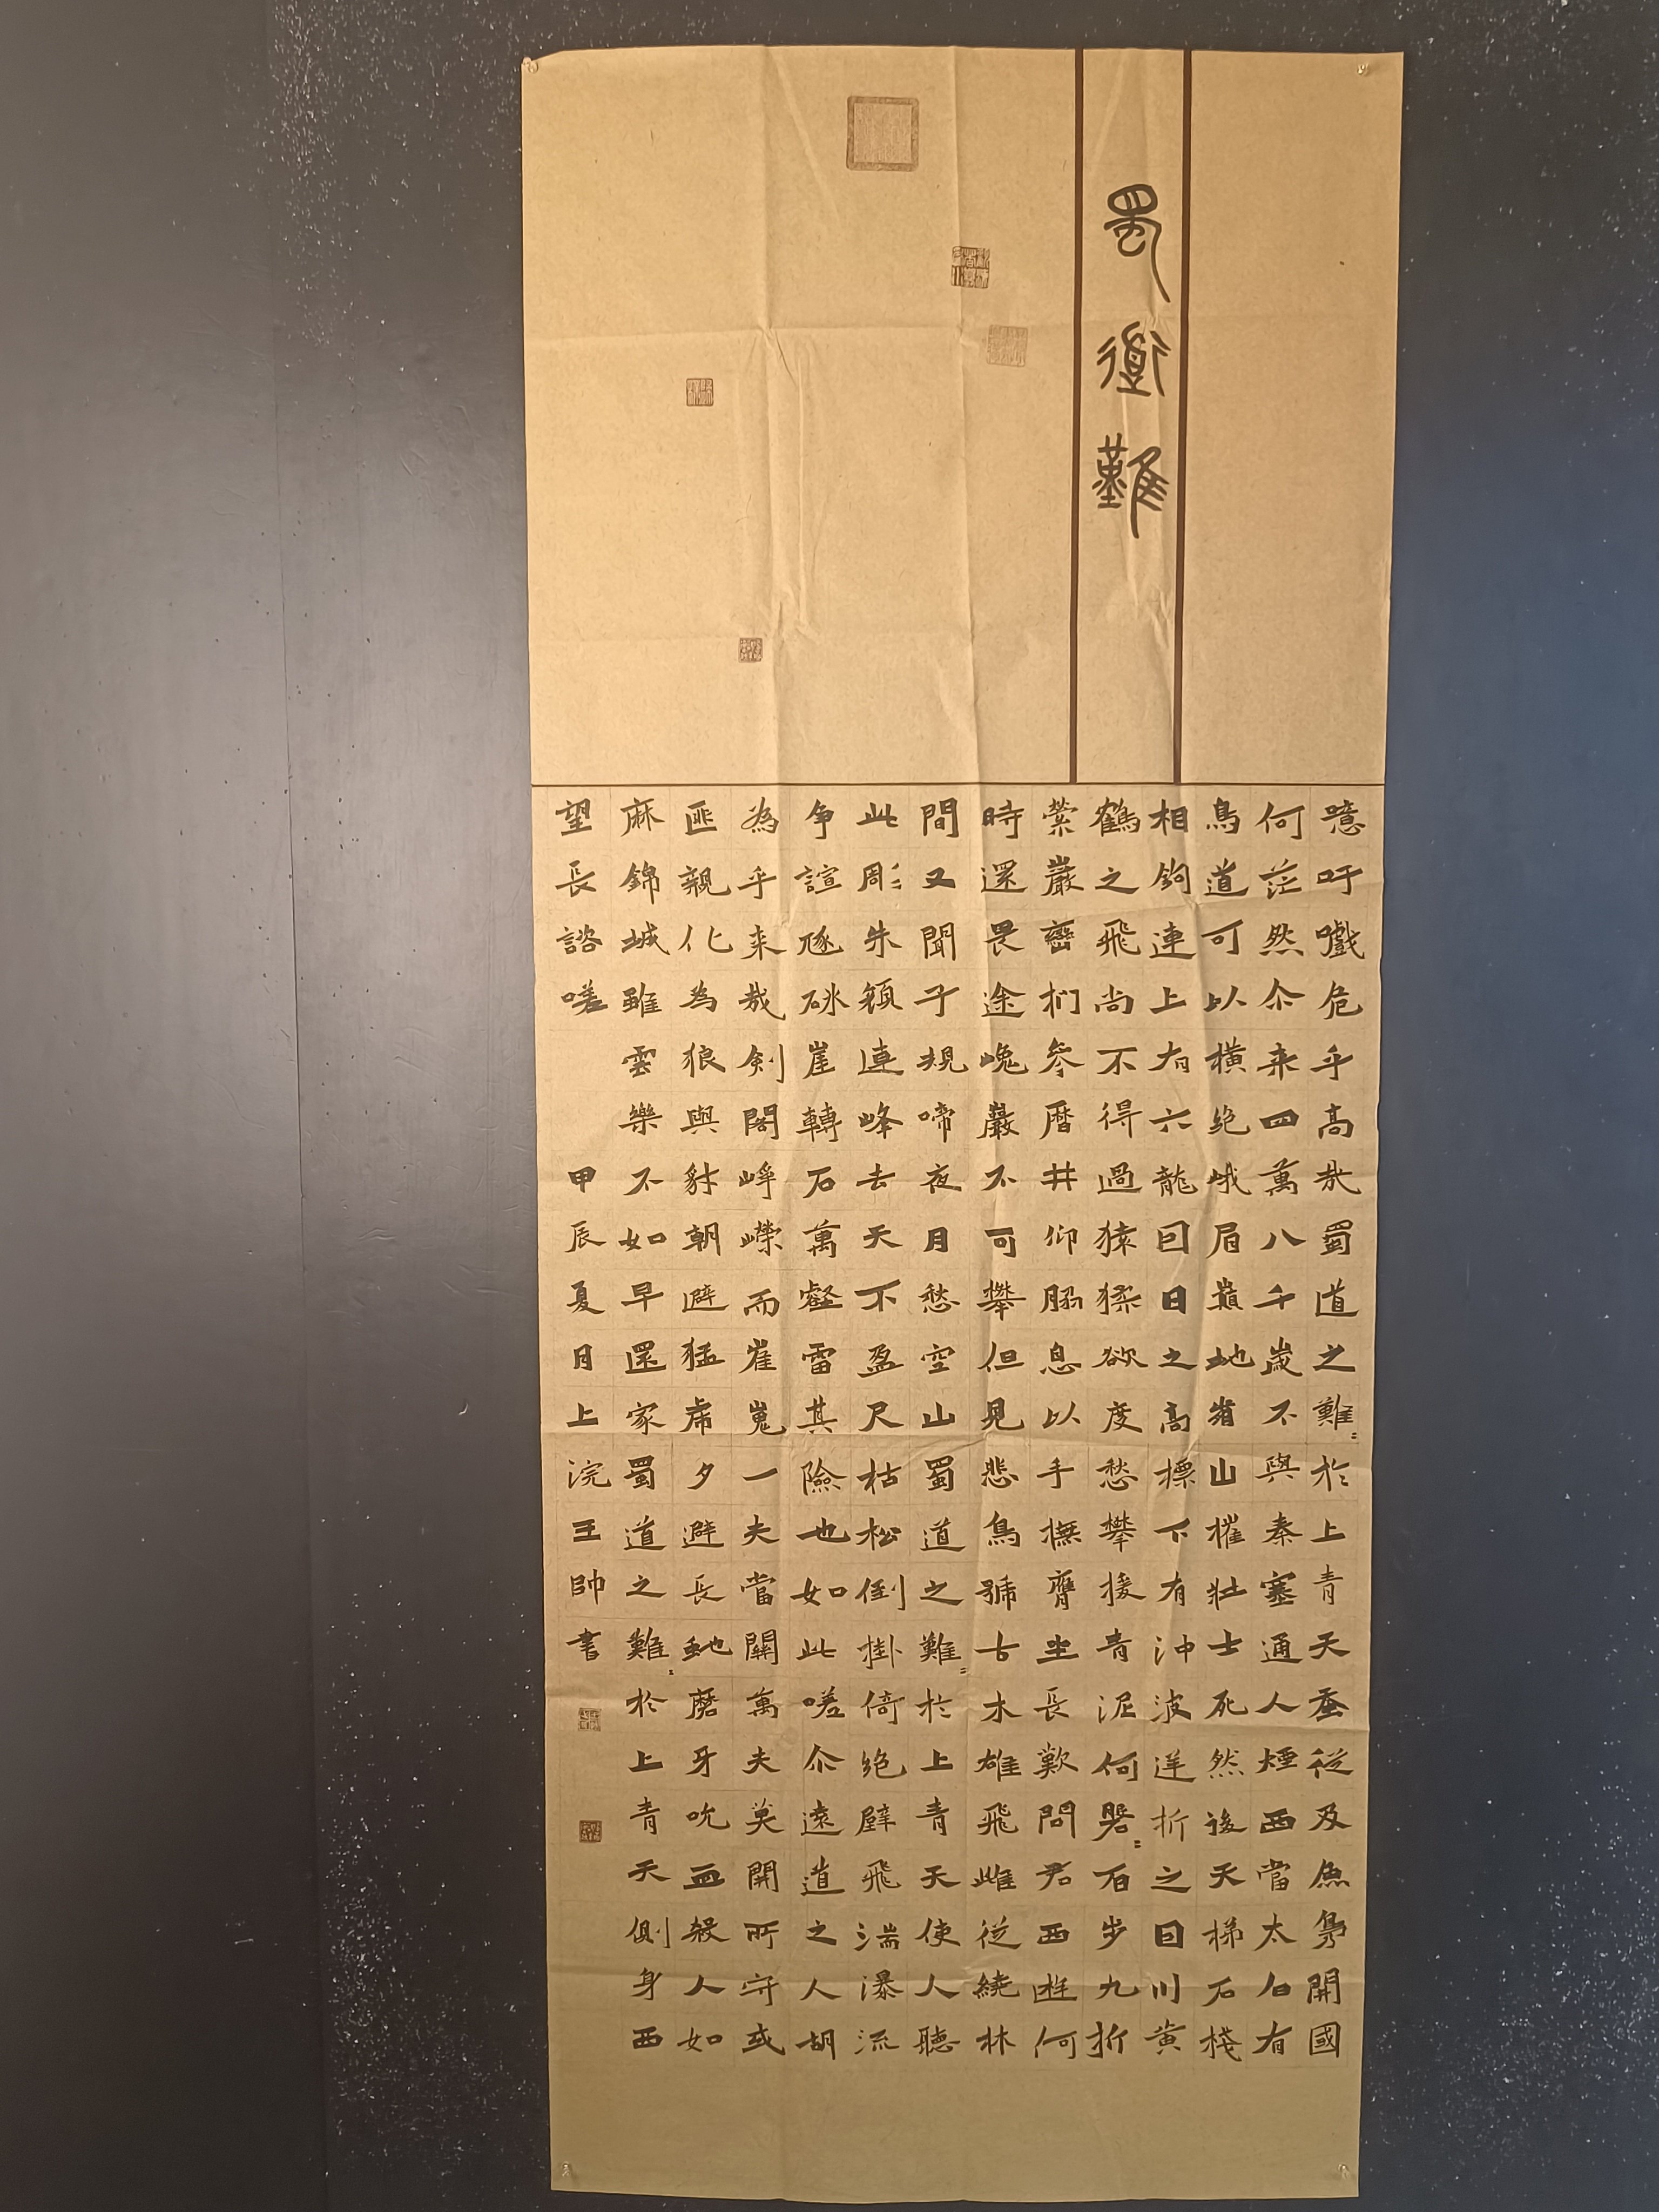 蜀衟難
噫吁嚱危乎高哉蜀道之難〻於上青天蚕從及魚鳧開國
何茫然尒来四萬八千歲不與秦塞通人煙西當太白有
鳥道可以橫絶峨眉巔地崩山摧壯士死然後天梯石棧
相鉤連上有六龍回日之高標下有沖波逆折之回川黃
鶴之飛尚不得過猿猱欲度愁攀援青泥何盤〻百步九折
縈巖巒捫參歷井仰脇息以手撫膺坐長歎問君西遊何
時還畏途巉巖不可攀但見悲鳥號古木雄飛雌從繞林
間又聞子規啼夜月愁空山蜀道之難〻於上青天使人聽
此彫朱顏連峰去天不盈尺枯松倒掛倚絶壁飛湍瀑流
争諠豗砯崖轉石萬壑雷其險也如此嗟尒遠道之人胡
為乎来哉劍閣崢嶸而崔嵬一夫當關萬夫莫開所守或
匪親化為狼與豺朝避猛虎夕避長蛇磨牙吮血殺人如
麻錦城雖雲樂不如早還家蜀道之難〻於上青天側身西
望長諮嗟 甲辰夏月上浣王帥書